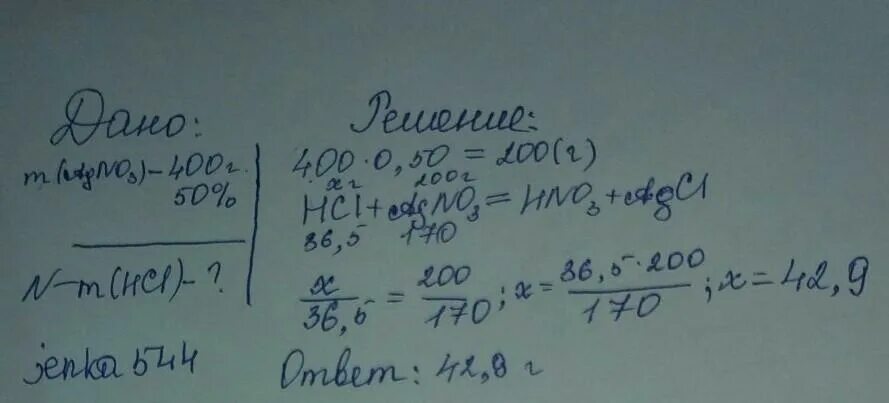 Дано:
m(AgNO₃) – 400 г.
50%
N – m(HCl) – ?
jenka 544
Решение:
400 · 0,50 = 200 (г)
x г 200 г
HCl + AgNO₃ = HNO₃ + AgCl
36,5 170
x/36,5 = 200/170 ; x = 36,5 · 200/170 ; x = 42,9
Ответ: 42,9 г